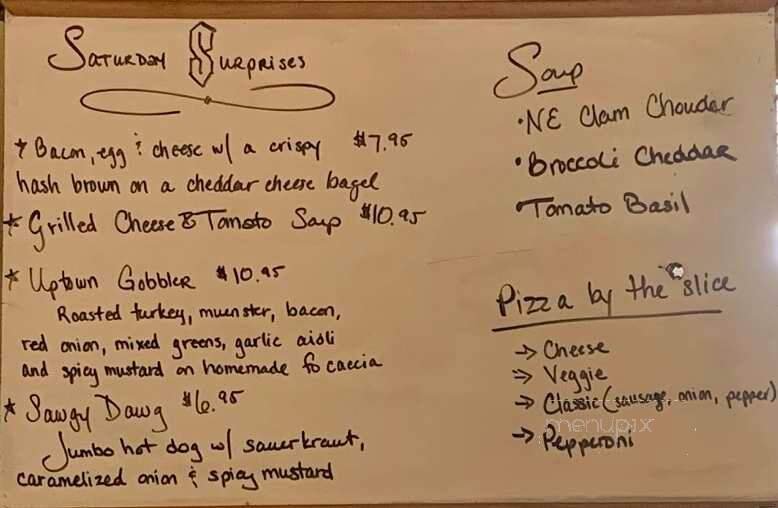 Saturday Surprises
* Bacon, egg & cheese w/ a crispy $7.95
hash brown on a cheddar cheese bagel
* Grilled Cheese & Tomato Soup $10.95
* Uptown Gobbler $10.95
Roasted turkey, muenster, bacon,
red onion, mixed greens, garlic aioli
and spicy mustard on homemade focaccia
* Sawgy Dawg $6.95
Jumbo hot dog w/ sauerkraut,
caramelized onion & spicy mustard
Soup
• NE Clam Chowdar
• Broccoli Cheddar
• Tomato Basil
Pizza by the slice
→ Cheese
→ Veggie
→ Classic (sausage, onion, pepper)
→ Pepperoni
menupix